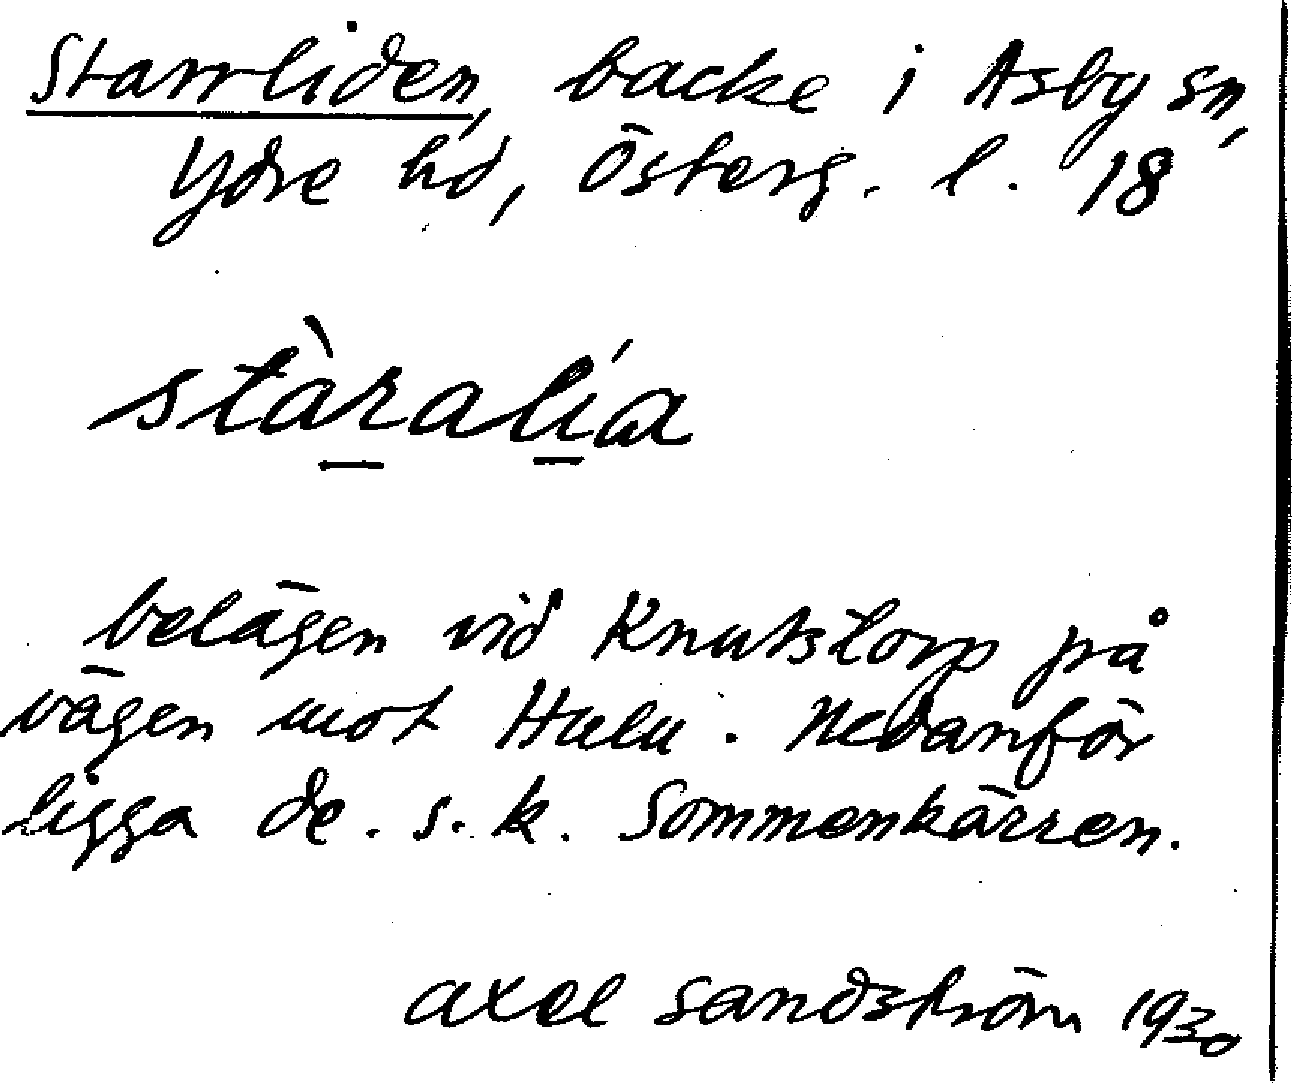 Starrliden, backe i Asby sn,
Ydre hd, Österg. l. 18
stàralía
belägen vid Knutstorp på
vägen mot Hulu. Nedanför
ligga de. s. k. Sommenkärren.
axel sandström 1930